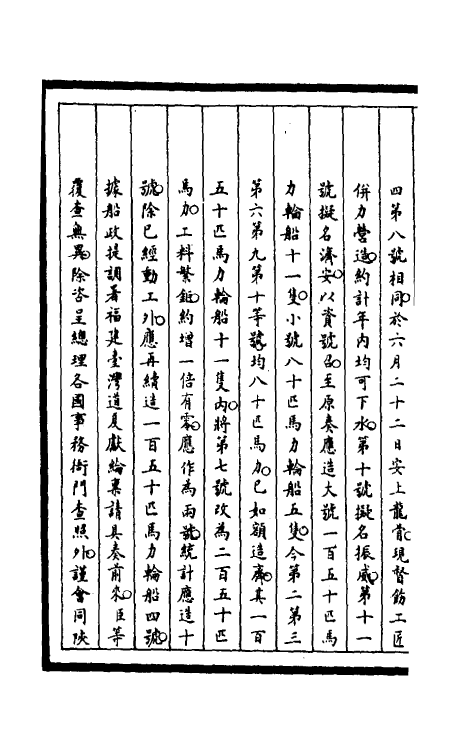 四第八號相同於六月二十二日安上龍骨現督飭工匠
併力營造約計年內均可下水第十號擬名振威第十一
號擬名濟安以資號召至原奏應造大號一百五十匹馬
力輪船十一隻小號八十匹馬力輪船五隻今第二第三
第六第九第十等號均八十匹馬力已如額造齊其一百
五十匹馬力輪船十一隻內將第七號改為二百五十匹
馬加工料繁鉅約增一倍有零應作為兩號統計應造十
號除已經動工外應再續造一百五十匹馬力輪船四號
據船政提調署福建臺灣道夏獻綸稟請具奏前來臣等
覆查無異除咨呈總理各國事務衙門查照外謹會同陝